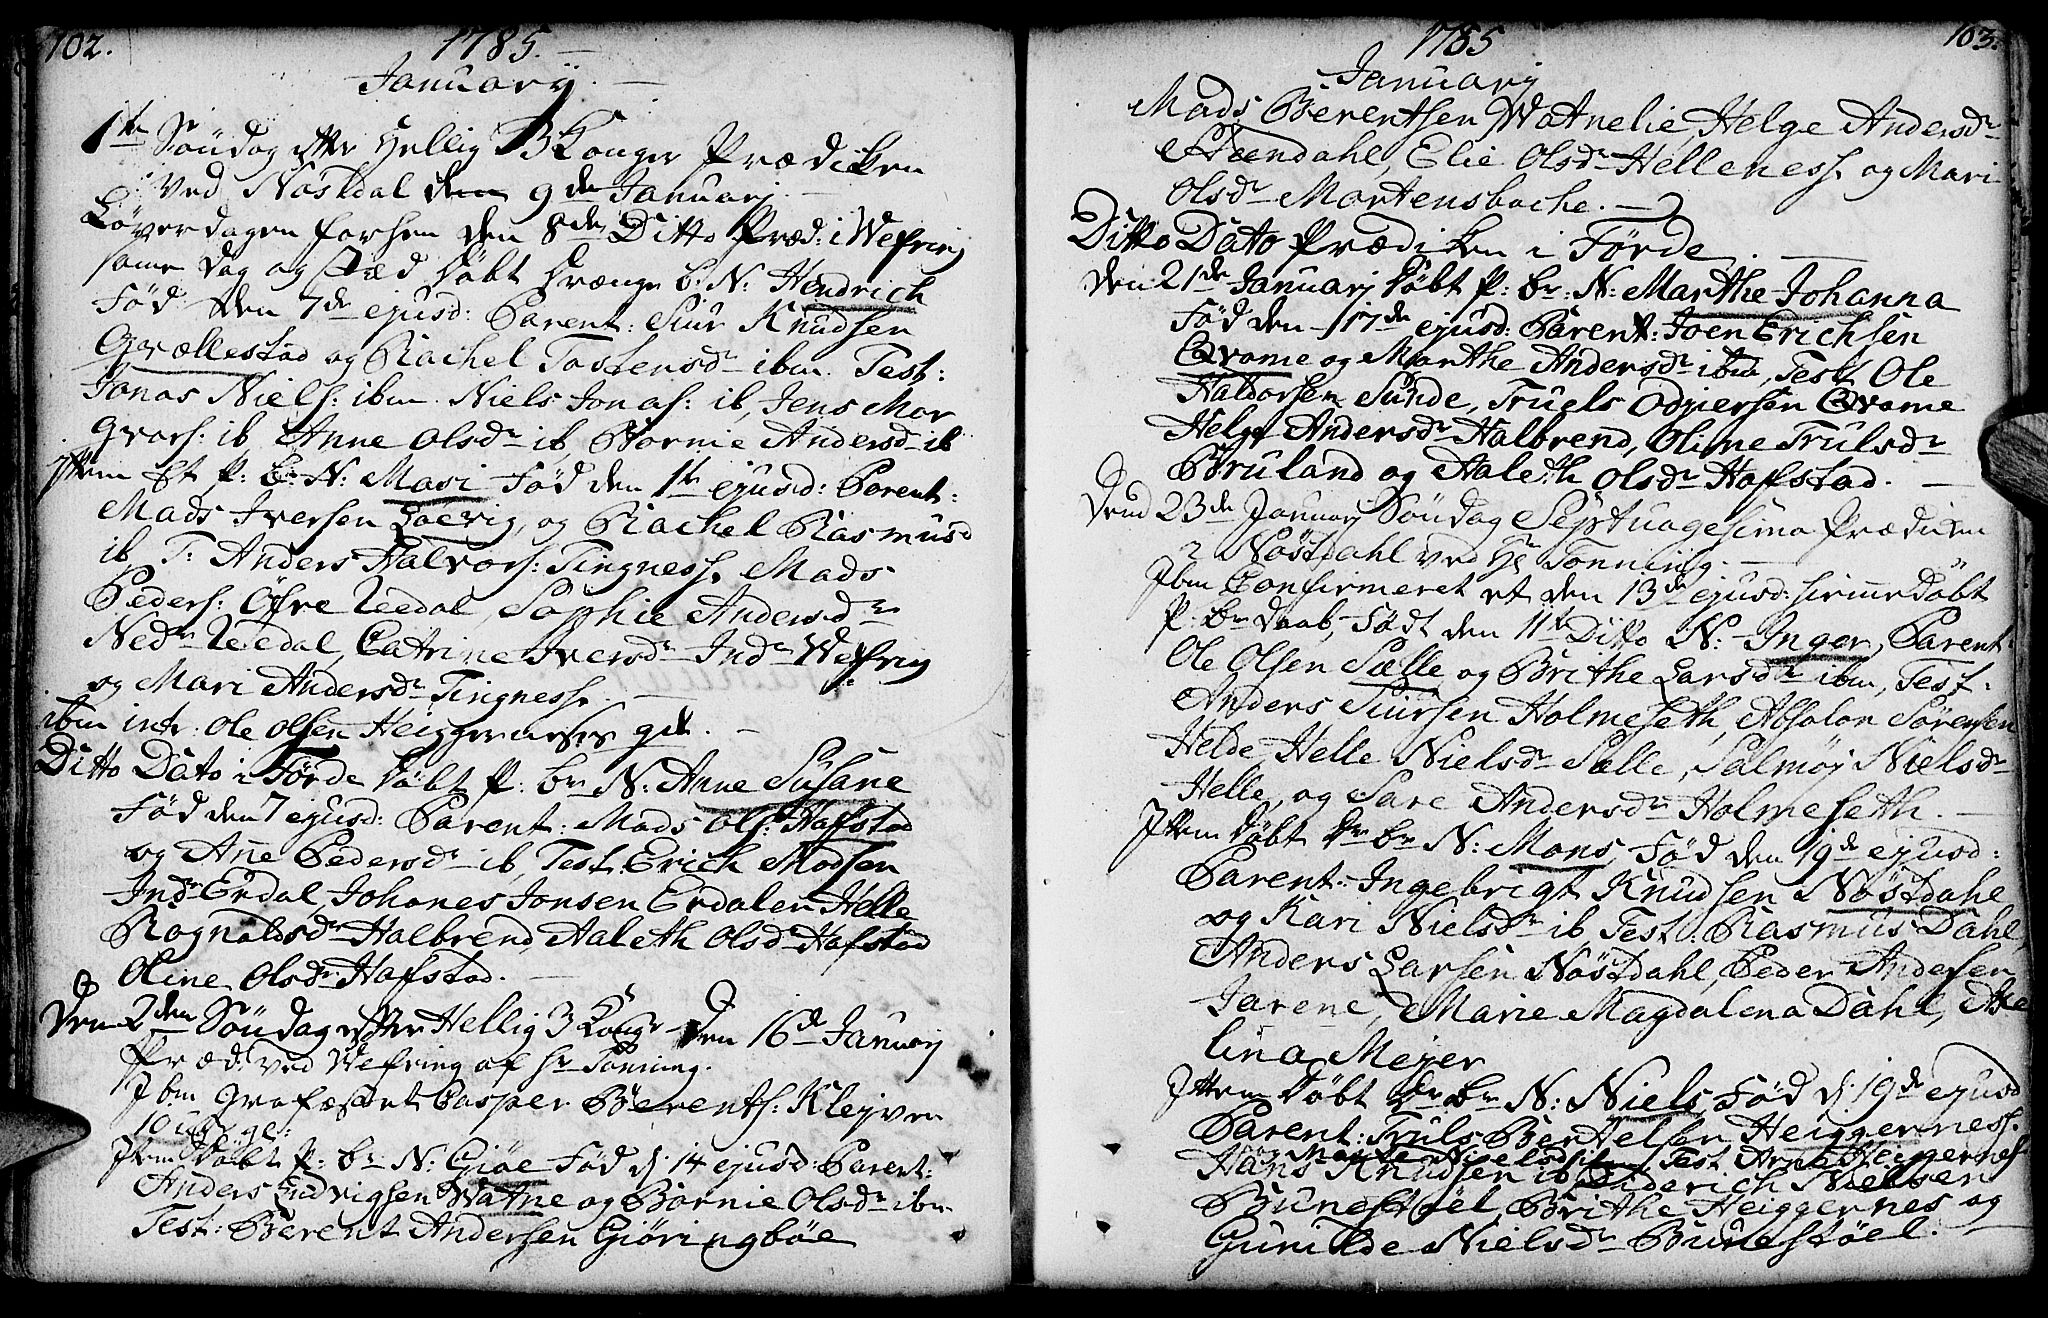 102.
1785.
Januarij.
1te Søndag efter Hellig 3 Konger Prædiken
ved Nøstdal den 9de Januarij
Løverdagen forhen den 8de Ditto Præd: i Wefring
same Dag og Stæd døbt b: N: Hendrich
Fød den 7de ejusd: Parent: Siur Knudsen
Gjællestad og Rachel Tostensdr ibm. Test:
Jonas Niels: ibm. Niels Jonas: ib, Jens Mor
gvars: ib Anne Olsdr ib, Bornie Andersd ib
Item Et P. b: N: Mari Fød den 1te ejusd: Parent:
Mads Iversen Løevig, og Rachel Rasmusd
ib T: Anders Halvors: Tingness. Mads
Peders: Øfre Uedal, Sophie Andersdr
Nedr Uedal, Catrine Iversdr Indr Wefring
og Mari Andersdr Tingness.
ibm intr: Ole Olsen Heiggernesses
Ditto Dato i Førde døbt P. br N: Anne Susane
Fød den 7 ejusd: Parent: Mads Ols: Hafstad
og Anne Pedersdr ib, Test. Erich Madsen
Indr Erdal, Johanes Jonsen Erdalen Helle
Ragnaldsdr Halbrend, Aaleth Olsdr Hafstad
Oline Olsdr Hafstad.
Den 2den Søndag efter Hellig 3 Kong: den 16de Januarij
Præd: ved Wefring af Hr Tonning.
Ibm Grafæstet Casper Berents: Klejven
10 uger
Item Døbt P: br N: Giøe Fød d: 14 ejusd: Parent:
Anders Ludvigsen Watne og Bornie Olsdr ibm
Test: Berent Andersen Giøringbøe
103.
1785
Januarij
Mads Berentsen Watnelie, Helge Andersdr
Steendahl, Elie Olsdr Helleness. og Mari
Olsdr Mortensbache.
Ditto Dato Prædiken i Førde.
Den 21de Januarij døbt P: br: N: Marthe Johanna
Fød den 17de ejusd: Parent: Joen Erichsen
Qvame og Marthe Andersdr ibm, Test Ole
Haldorsen Sunde, Truels Odgiersen Qvame
Helge Andersdr Halbrend, Oline Trulsdr
Bruland og Aaleth Olsdr Hafstad.
Dend 23de Januarij Søndag Septuagesima Prædiken
i Nøstdahl ved Hr Tonning.
Ibm Confirmeret et den 13de ejusd: hieme døbt
P. br Daab, Født den 11te Ditto N: Inger, Parent:
Ole Olsen Sælle og Brithe Larsdr ibm, Test:
Anders Siursen Holmeseth, Absalon Sørensen
Helde, Helle Nielsdr Sælle, Salmøj Nielsdr
Helle, og Sare Andersdr Holmeseth.
Item døbt br N: Mons, Fød den 19de ejusd:
Parent: Ingebrigt Knudsen Nøstdahl
og Kari Nielsdr ib Test: Rasmus Dahl,
Anders Larsen Nøstdahl, Peder Andersen
Jarene, Marie Magdalena Dahl, Axe
lina Mejer
Item Døbt br N: Niels, Fød d: 19de ejusd
Parent: Truls Berthelsen Heiggerness.
og Nielsdr ibm, Test. Arne Heiggernes
Hans Knudsen ib Diderich Nielsen
Bunestøel, Brithe Heiggernes og
Gunilde Nielsdr Bunestøel.